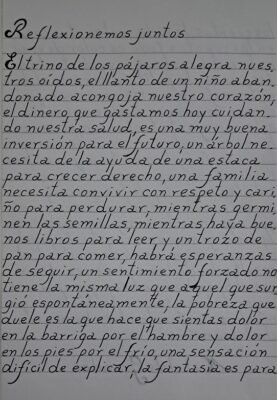 Reflexionemos juntos
El trino de los pájaros alegra nues
tros oídos, el llanto de un niño aban
donado acongoja nuestro corazón,
el dinero que gastamos hoy cuidan
do nuestra salud, es una muy buena
inversión para el futuro, un árbol ne
cesita de la ayuda de una estaca
para crecer derecho, una familia
necesita convivir con respeto y cari
ño para perdurar, mientras germi
nen las semillas, mientras haya bue
nos libros para leer, y un trozo de
pan para comer, habrá esperanzas
de seguir, un sentimiento forzado no
tiene la misma luz que aquel que sur
gió espontáneamente, la pobreza que
duele es la que hace que sientas dolor
en la barriga por el hambre y dolor
en los pies por el frío, una sensación
difícil de explicar, la fantasía es para